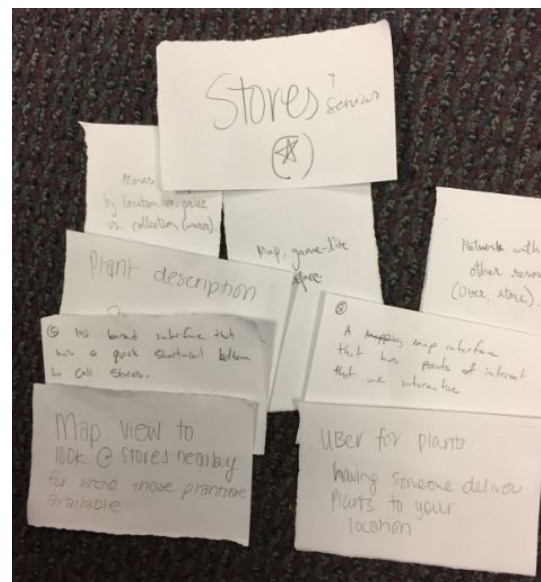 Stores +
services
by location vs. price
vs. collection
Map, game-like
space
Plant description
Network with
other
(Uber, store).
list based interface that
has a quick shortcut button
to call stores.
A map interface
that has points of interest
that are interactive
Map view to
look @ stores nearby
for where those plants are
available
UBER for plants
having someone deliver
plants to your
location